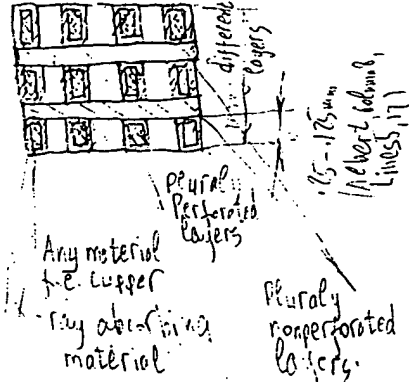 different
layers
.25-.125mm
Plural
Perforated
layers
Any material
i.e. cupper
ray absorbing
material
Plural
nonperforated
layers.